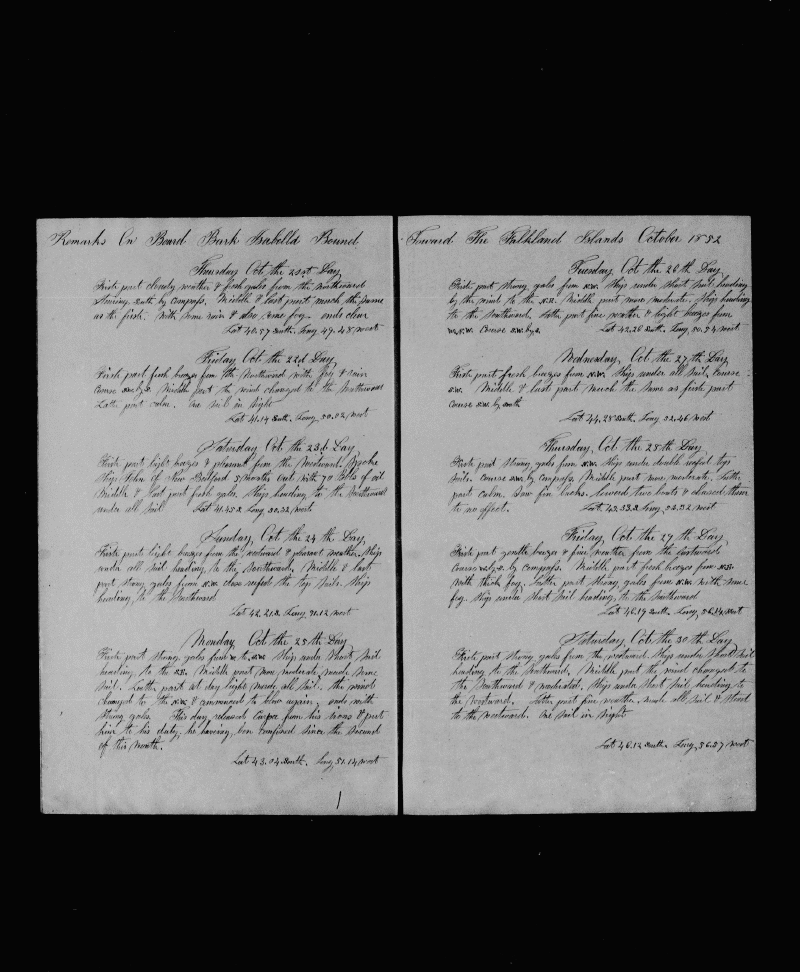 Remarks On Board Bark Isabella Bound
Thursday Oct the 21st Day
Firste part cloudy weather & fresh gales from the northward
Stearing South by Compass. Middle & last part much the same
as the first. With some rain & also some fog. ends clear
Lat 40.57 South. Long 49.48 West
Friday Oct the 22d Day
Firste part fresh breezes from the Northward with fog & rain
Course S.W. by S. Middle part the wind changed to the Southward
Latter part calm. One sail in sight
Lat 41.14 South. Long 50.02 West
Saturday Oct the 23d Day
Firste part light breezes & pleasant from the Westward. Spoke
Ship John of New Bedford 5 months out with 70 bbls of oil
Middle & last part fresh gales. Ship heading to the Southward
under all sail Lat 41.45 S. Long 50.32 West
Sunday, Oct the 24 Day
Firste part light breezes from the westward & pleasant weather. Ship
under all sail heading to the Southward, Middle & last
part strong gales from S.W. close reefed the top sails. Ship
heading to the Southward
Lat 42.21 S. Long 51.12 West
Monday Oct the 25th Day
Firste part strong gales from W. to S.W. Ship under short sail
heading to the S.E. Middle part more moderate made more
sail. Latter part at day light made all sail. the wind
changed to the N.W. & commenced to blow again. ends with
strong gales. This day released Cooper from his irons & put
him to his duty, he having been confined since the second
of this month.
Lat 43.04 South. Long 51.14 West
Toward The Falkland Islands October 1852
Tuesday Oct the 26th Day
Firste part strong gales from S.W. Ship under short sail heading
by the wind to the S.E. Middle part more moderate, Ship heading
to the southward. Latter part fine weather & light breezes from
W.N.W. Course S.W. by S. Lat 42.26 South. Long 50.54 West
Wednesday, Oct the 27th Day
Firste part fresh breezes from N.W. Ship under all sail Course
S.W. Middle & last part much the same as first part
Course S.W. by South
Lat 44.28 South. Long 52.46 West
Thursday, Oct the 28th Day
Firste part strong gales from N.W. Ship under double reefed top
sails. Course S.W. by Compass. Middle part more moderate. Latter
part calm. Saw fin backs. lowered two boats & chased them
to no effect. Lat 45.33 S. Long 52.32 West
Friday, Oct the 29 Day
Firste part gentle breezes & fine weather from the Eastward
Course W. by S. by Compass. Middle part fresh breezes from N.E.
with thick fog. Latter part strong gales from N.W. with some
fog. Ship under short sail heading to the Southward
Lat 46.19 South. Long 56.14 West
Saturday, Oct the 30th Day
Firste part strong gales from the westward. Ship under Short sail
heading to the Southward, Middle part the wind changed to
the Southward & moderated. Ship under short sail heading to
the westward. Latter part fine weather. made all sail & stood
to the westward. One sail in sight
Lat 46.12 South. Long 56.57 West